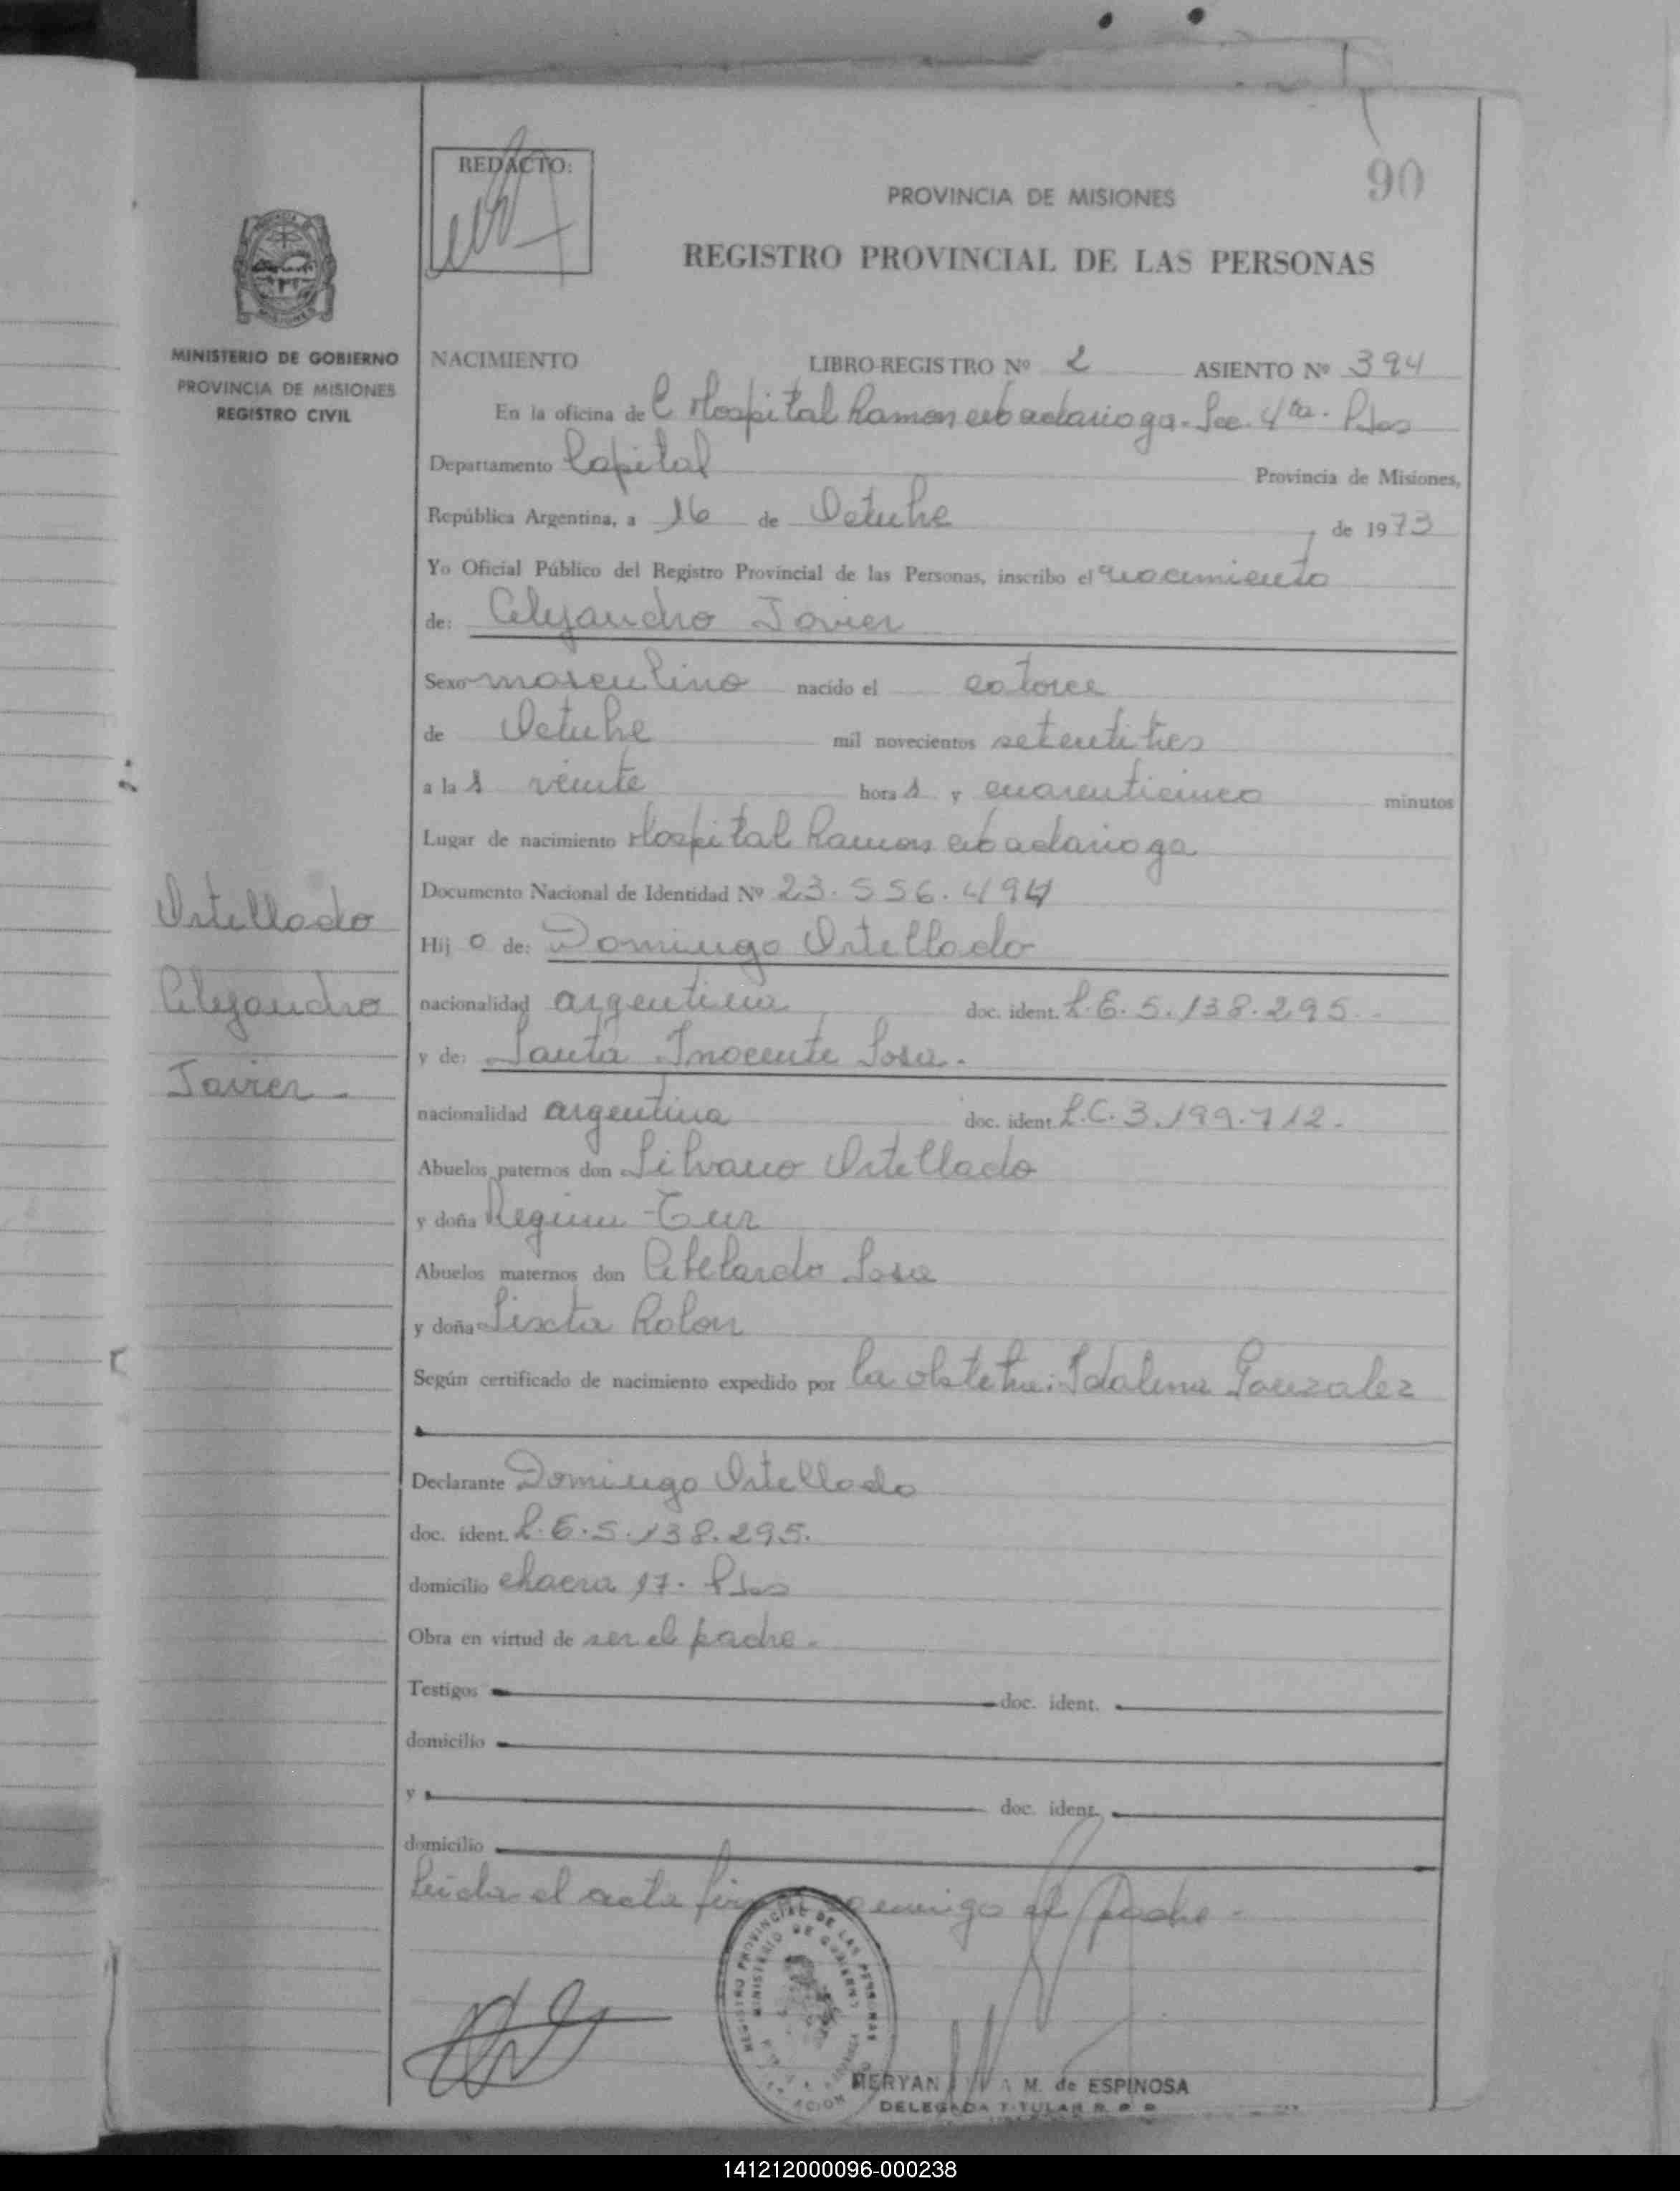 REDACTO:
90
PROVINCIA DE MISIONES
REGISTRO PROVINCIAL DE LAS PERSONAS
MINISTERIO DE GOBIERNO
PROVINCIA DE MISIONES
REGISTRO CIVIL
NACIMIENTO LIBRO-REGISTRO Nº 2 ASIENTO Nº 394
En la oficina de Hospital Ramon Sec. 4ta. Pdas
Departamento Capital Provincia de Misiones,
República Argentina, a 16 de Octubre de 1973
Yo Oficial Público del Registro Provincial de las Personas, inscribo el nacimiento
de: Alejandro Javier
Sexo masculino nacido el catorce
de Octubre mil novecientos setentitres
a las veinte horas y cuarenticinco minutos
Lugar de nacimiento Hospital Ramon Madariaga
Documento Nacional de Identidad Nº 23.556.494
Hijo de: Domingo Ortellado
nacionalidad argentina doc. ident. L.E. 5.138.295.
y de: Santa Inocente Sosa.
nacionalidad argentina doc. ident. L.C. 3.199.712.
Abuelos paternos don Silvano Ortellado
y doña Regina
Abuelos maternos don Abelardo Sosa
y doña Sixta Rolon
Según certificado de nacimiento expedido por la obstetra: Idalina Gonzalez
Declarante Domingo Ortellado
doc. ident. L.E. 5.138.295.
domicilio chacra 17. Pdas
Obra en virtud de ser el padre.
Testigos doc. ident.
domicilio
y doc. ident.
domicilio
Leida el acta firma conmigo el padre.
Ortellado
Alejandro
Javier.
REGISTRO PROVINCIAL DE LAS PERSONAS
MINISTERIO DE GOBIERNO
MERYAN M. de ESPINOSA
DELEGADA TITULAR R. P. P.
141212000096-000238